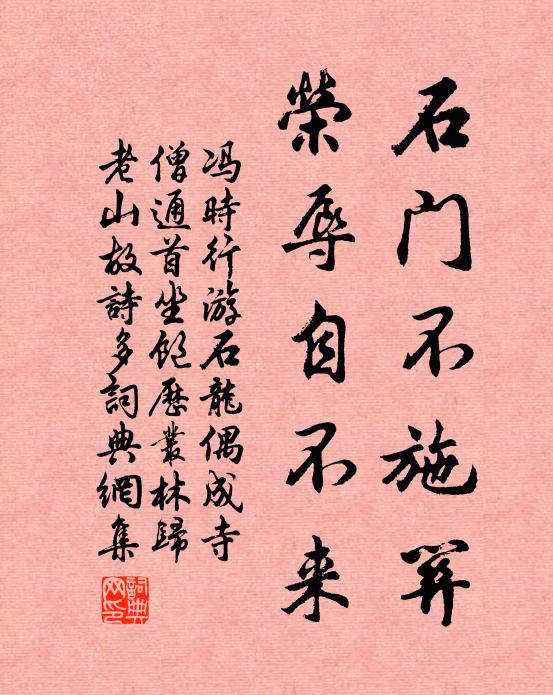 石门不施関
榮辱自不来
冯時行游石龍偶成寺
僧通首坐飽歷叢林歸
老山故詩多詞典網集
詞典网印